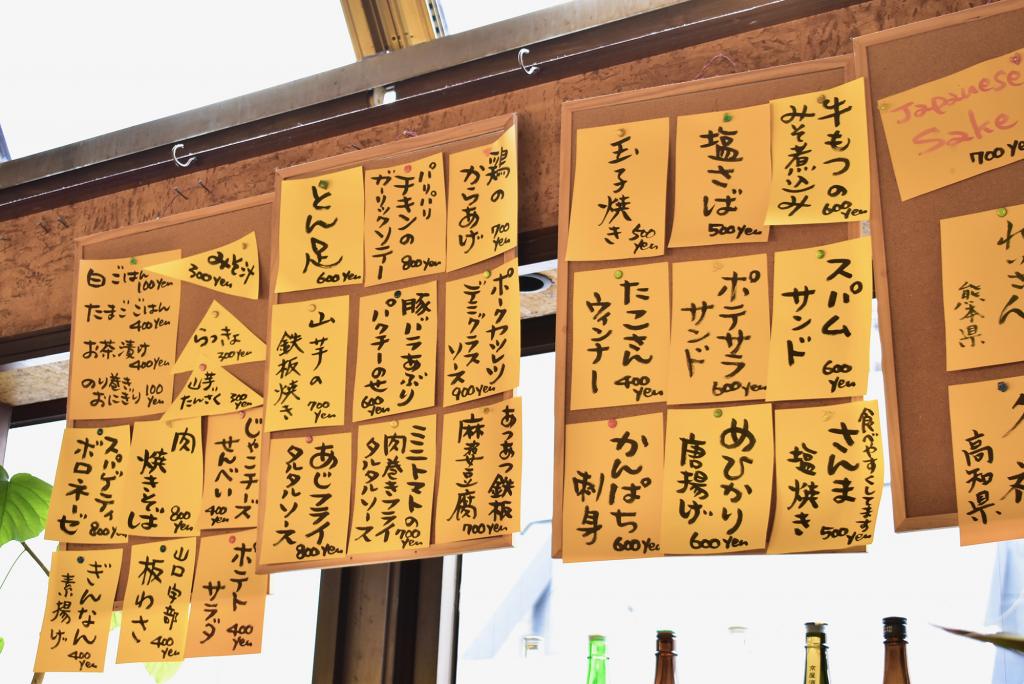 白ごはん 100Yen
たまごごはん
400Yen
お茶漬け
400Yen
のり巻き
おにぎり 100Yen
みそ汁
300Yen
らっきょ
300Yen
山芋
たんざく 300Yen
スパゲティ
ボロネーゼ
800Yen
肉
焼きそば
800Yen
じゃこチーズ
せんべい
400Yen
ぎんなん
素揚げ
400Yen
山口宇部
板わさ
400Yen
ポテト
サラダ
400Yen
とん足
600Yen
パリパリ
チキンの
ガーリックソテー
800Yen
鶏の
からあげ
700Yen
山芋の
鉄板焼き
700Yen
豚バラあぶり
パクチーのせ
600Yen
ポークカツレツ
デミグラス
ソース
900Yen
あじフライ
タルタルソース
800Yen
ミニトマトの
肉巻きフライ
タルタルソース
700Yen
あつあつ鉄板
麻婆豆腐
700Yen
玉子焼き
500Yen
塩さば
500Yen
牛もつの
みそ煮込み
600Yen
たこさん
ウィンナー
400Yen
ポテサラ
サンド
600Yen
スパム
サンド
600Yen
かんぱち
刺身
600Yen
めひかり
唐揚げ
600Yen
食べやすくしてます
さんま
塩焼き
500Yen
Japanese
Sake
700Yen
熊本県
高知県